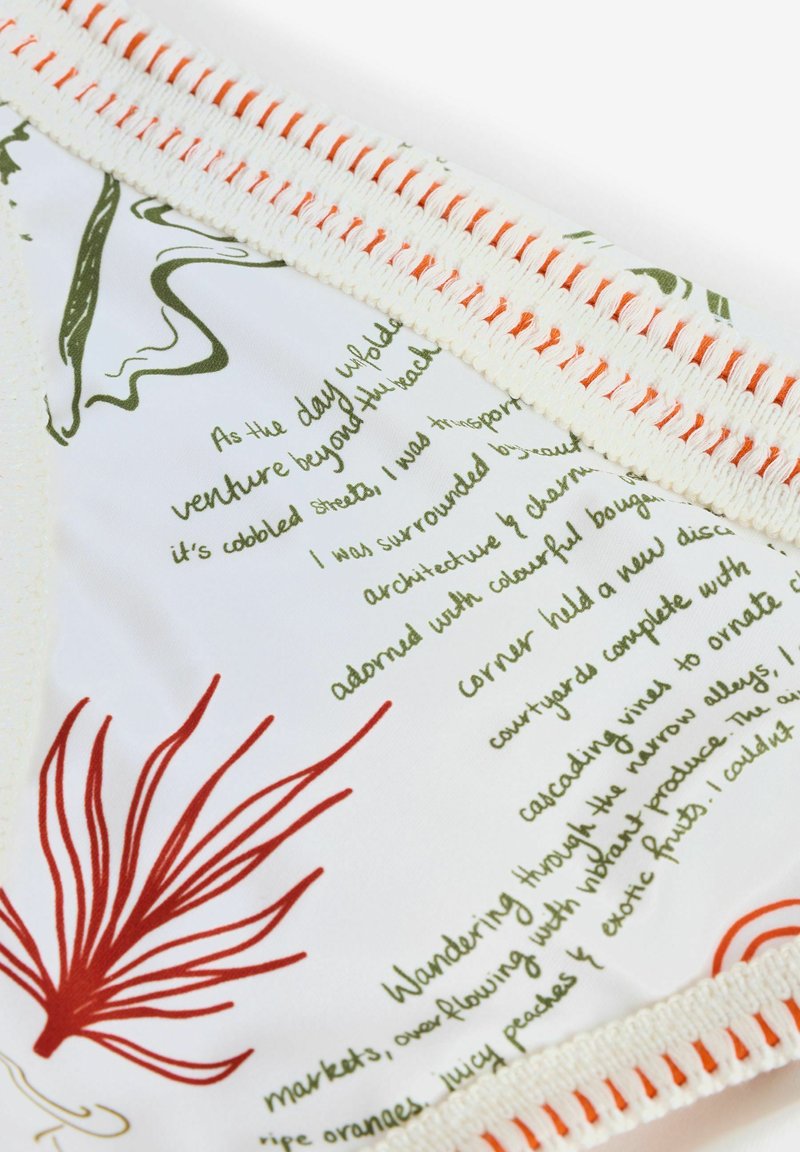 As the day unfolde
venture beyond the beach
it's cobbled streets, I was transport
I was surrounded by beaut
architecture & charm
adorned with colourful bougan
corner held a new disc
courtyards complete with
cascading vines to ornate
Wandering through the narrow alleys, I
markets, overflowing with vibrant produce. The
ripe oranges, juicy peaches & exotic fruits. I couldn't